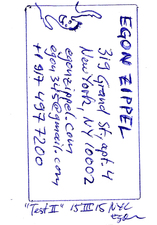 EGON ZIPPEL
319 Grand St. apt. 4
New York, NY 10002
egonzippel.com
egon347@gmail.com
+ 917-697 7200
"Test II" 15 III 15 NYC